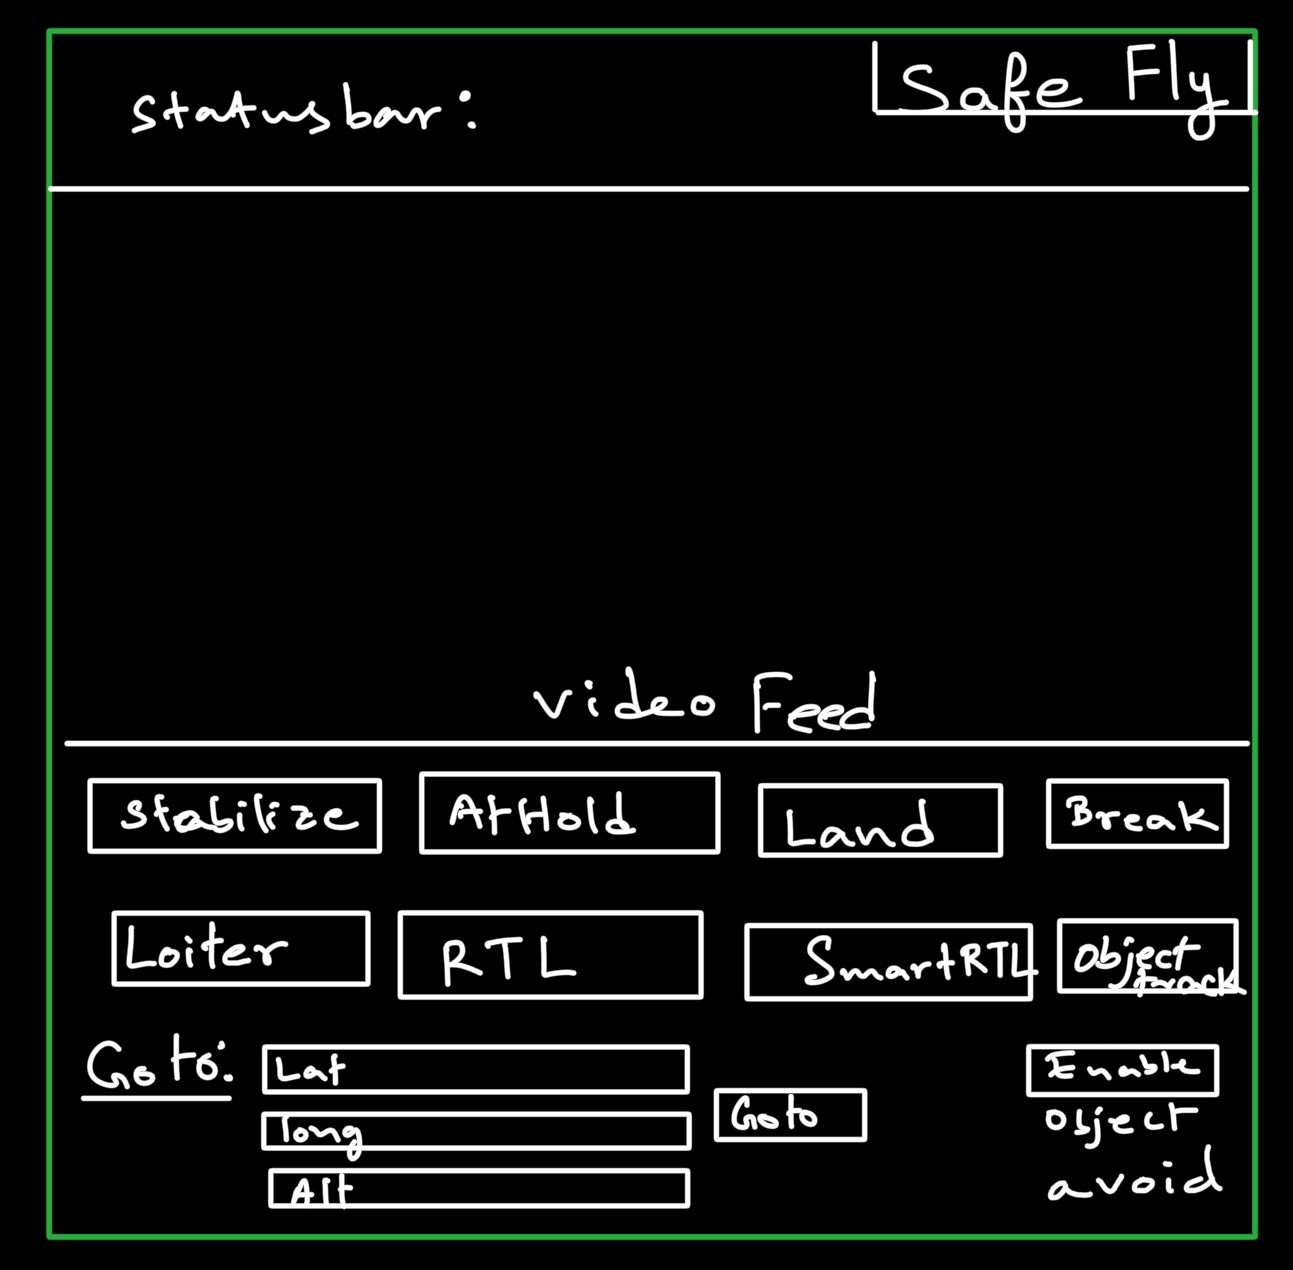 Safe Fly
Statusbar:
Video Feed
Stabilize
AltHold
Land
Break
Loiter
RTL
SmartRTL
Object
track
Goto:
Lat
long
Alt
Goto
Enable
object
avoid